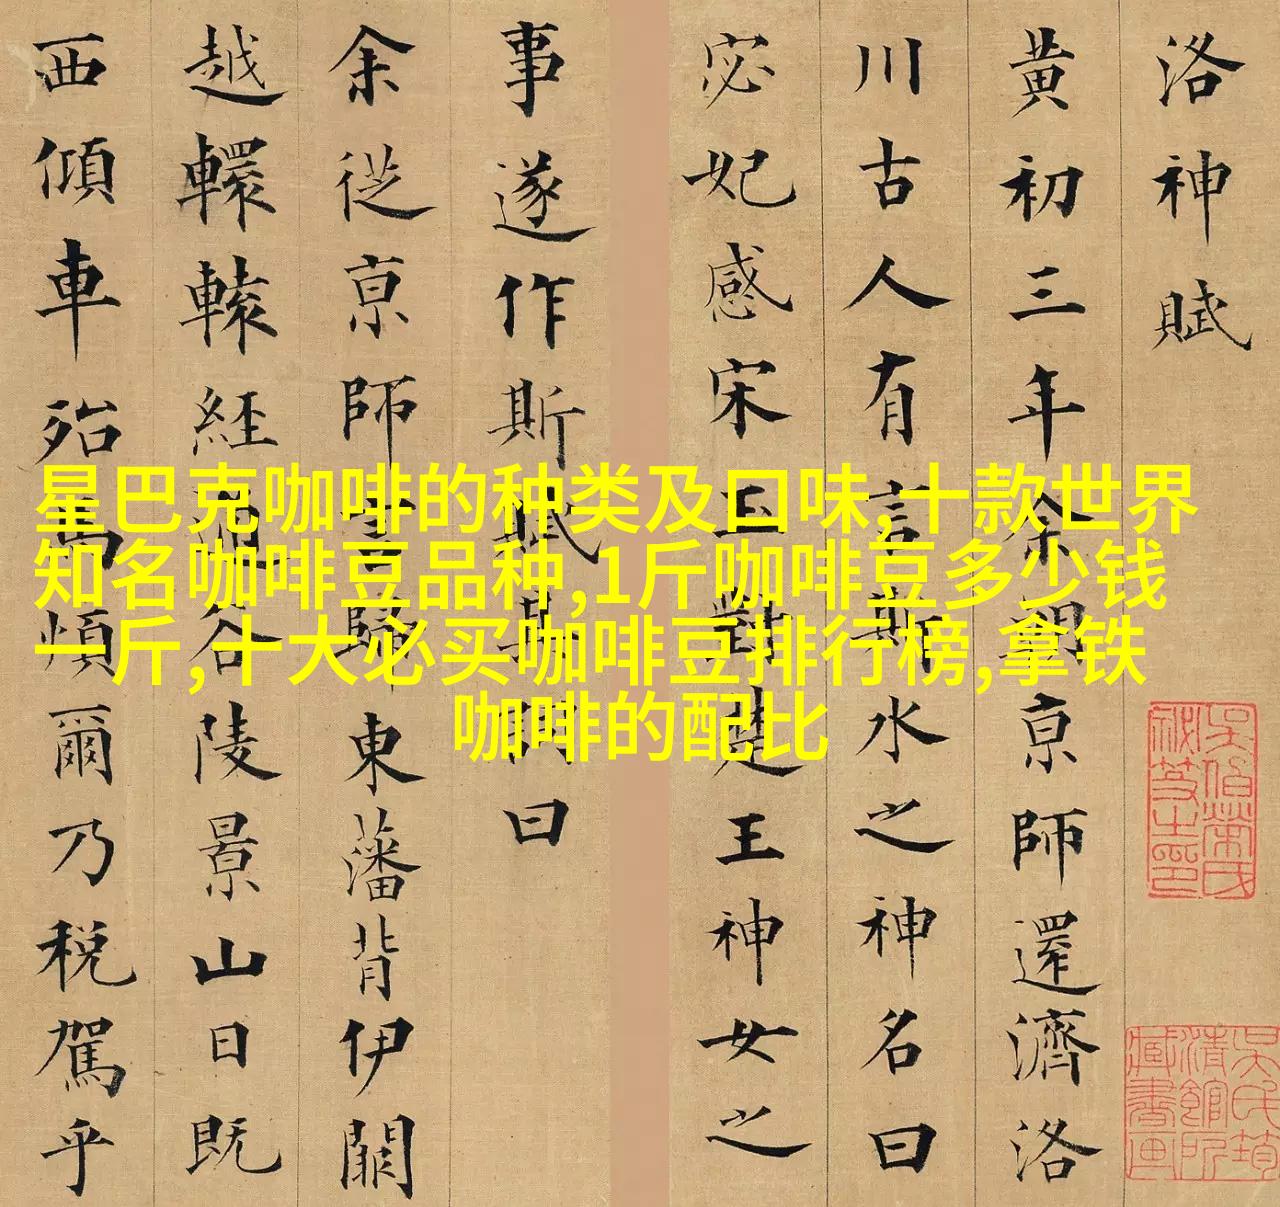 洛神賦
黃初三年余朝亰師還濟洛
川古人有言斯水之神名曰
宓妃感宋玉對楚王神女之
事遂作斯賦其詞曰
余從亰師言歸東藩背伊闕
越轘轅經通谷陵景山日既
西傾車殆馬煩爾乃稅駕乎
星巴克咖啡的种类及口味,十款世界
知名咖啡豆品种,1斤咖啡豆多少钱
一斤,十大必买咖啡豆排行榜,拿铁
咖啡的配比
吳氏筠
清館所
藏書畫